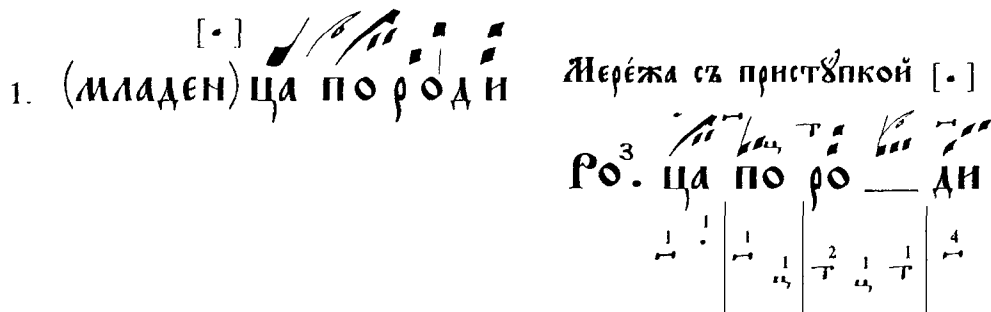 [•]
1. (младен)ца породи
Мере́жа съ пристꙋпкой [•]
Роз. ца по ро __ ди
1 1 1 1 2 1 1 4
ц т ц т